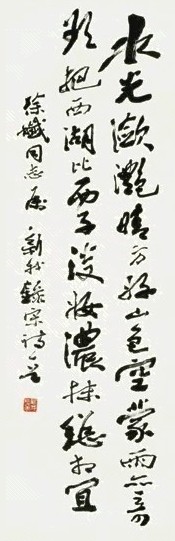 水光潋滟晴方好山色空蒙雨亦奇
欲把西湖比西子淡妆浓抹总相宜
徐娥同志属 新我录宋诗一首